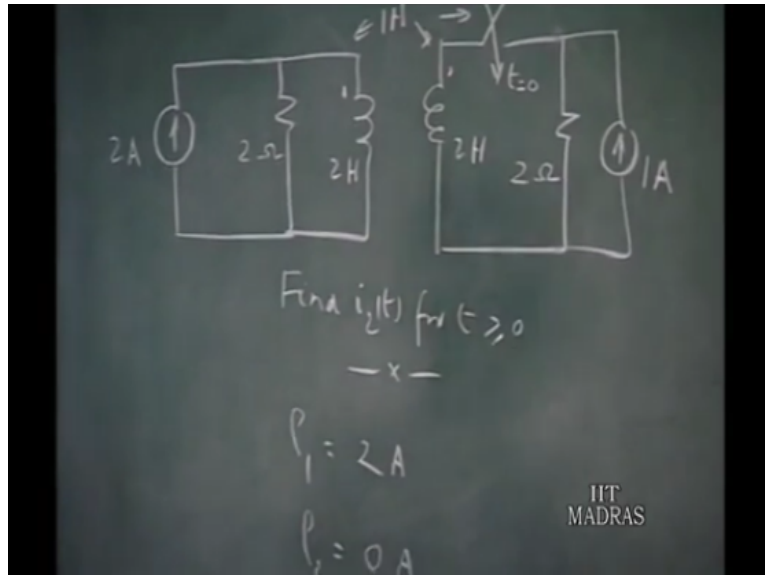 1H
t=0
2A
2Ω
2H
2H
2Ω
1A
Find i₂(t) for t ≥ 0
— x —
i₁ = 2 A
i₂ = 0 A
IIT
MADRAS